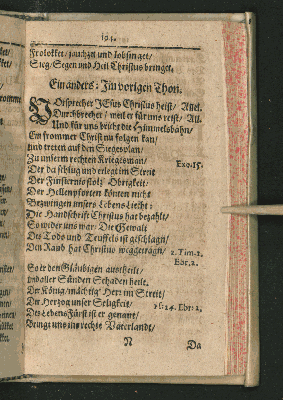 194.
Frolocket/ jauchzet und lobsinget/
Sieg/ Segen und Heil Christus bringet.
Ein anders: Im vorigen Thon.
VOrsprecher JEsus Christus heist/ Allel.
Durchbrecher/ weil er für uns reist/ All.
Und für uns bricht die Himmelsbahn/
Ein frommer Christ nu folgen kan/
und treten auf den Siegesplan/
Zu unserm rechten Kriegesman/ Exo. 15.
Der da schlug und erlegt im Streit
Der Finsternis stolz' Obrigkeit:
Der Hellenpforten könten nicht
Bezwingen unsers Lebens Liecht:
Die Handschrifft Christus hat bezahlt/
So wider uns war: Die Gewalt
Des Tods und Teuffels ist geschlagn/
Den Raub hat Christus weggetragn/ 2. Tim. 1.
Ebr. 2.
So er den Gläubigen austheilt/
und aller Sünden Schaden heilt.
Der König/ mächtig' Herr im Streit/
Der Herzog unser Seligkeit/ Ps. 24. Ebr: 2,
Des Lebens Fürst ist er genant/
Bringt uns ins rechte Vaterlandt/
N Da